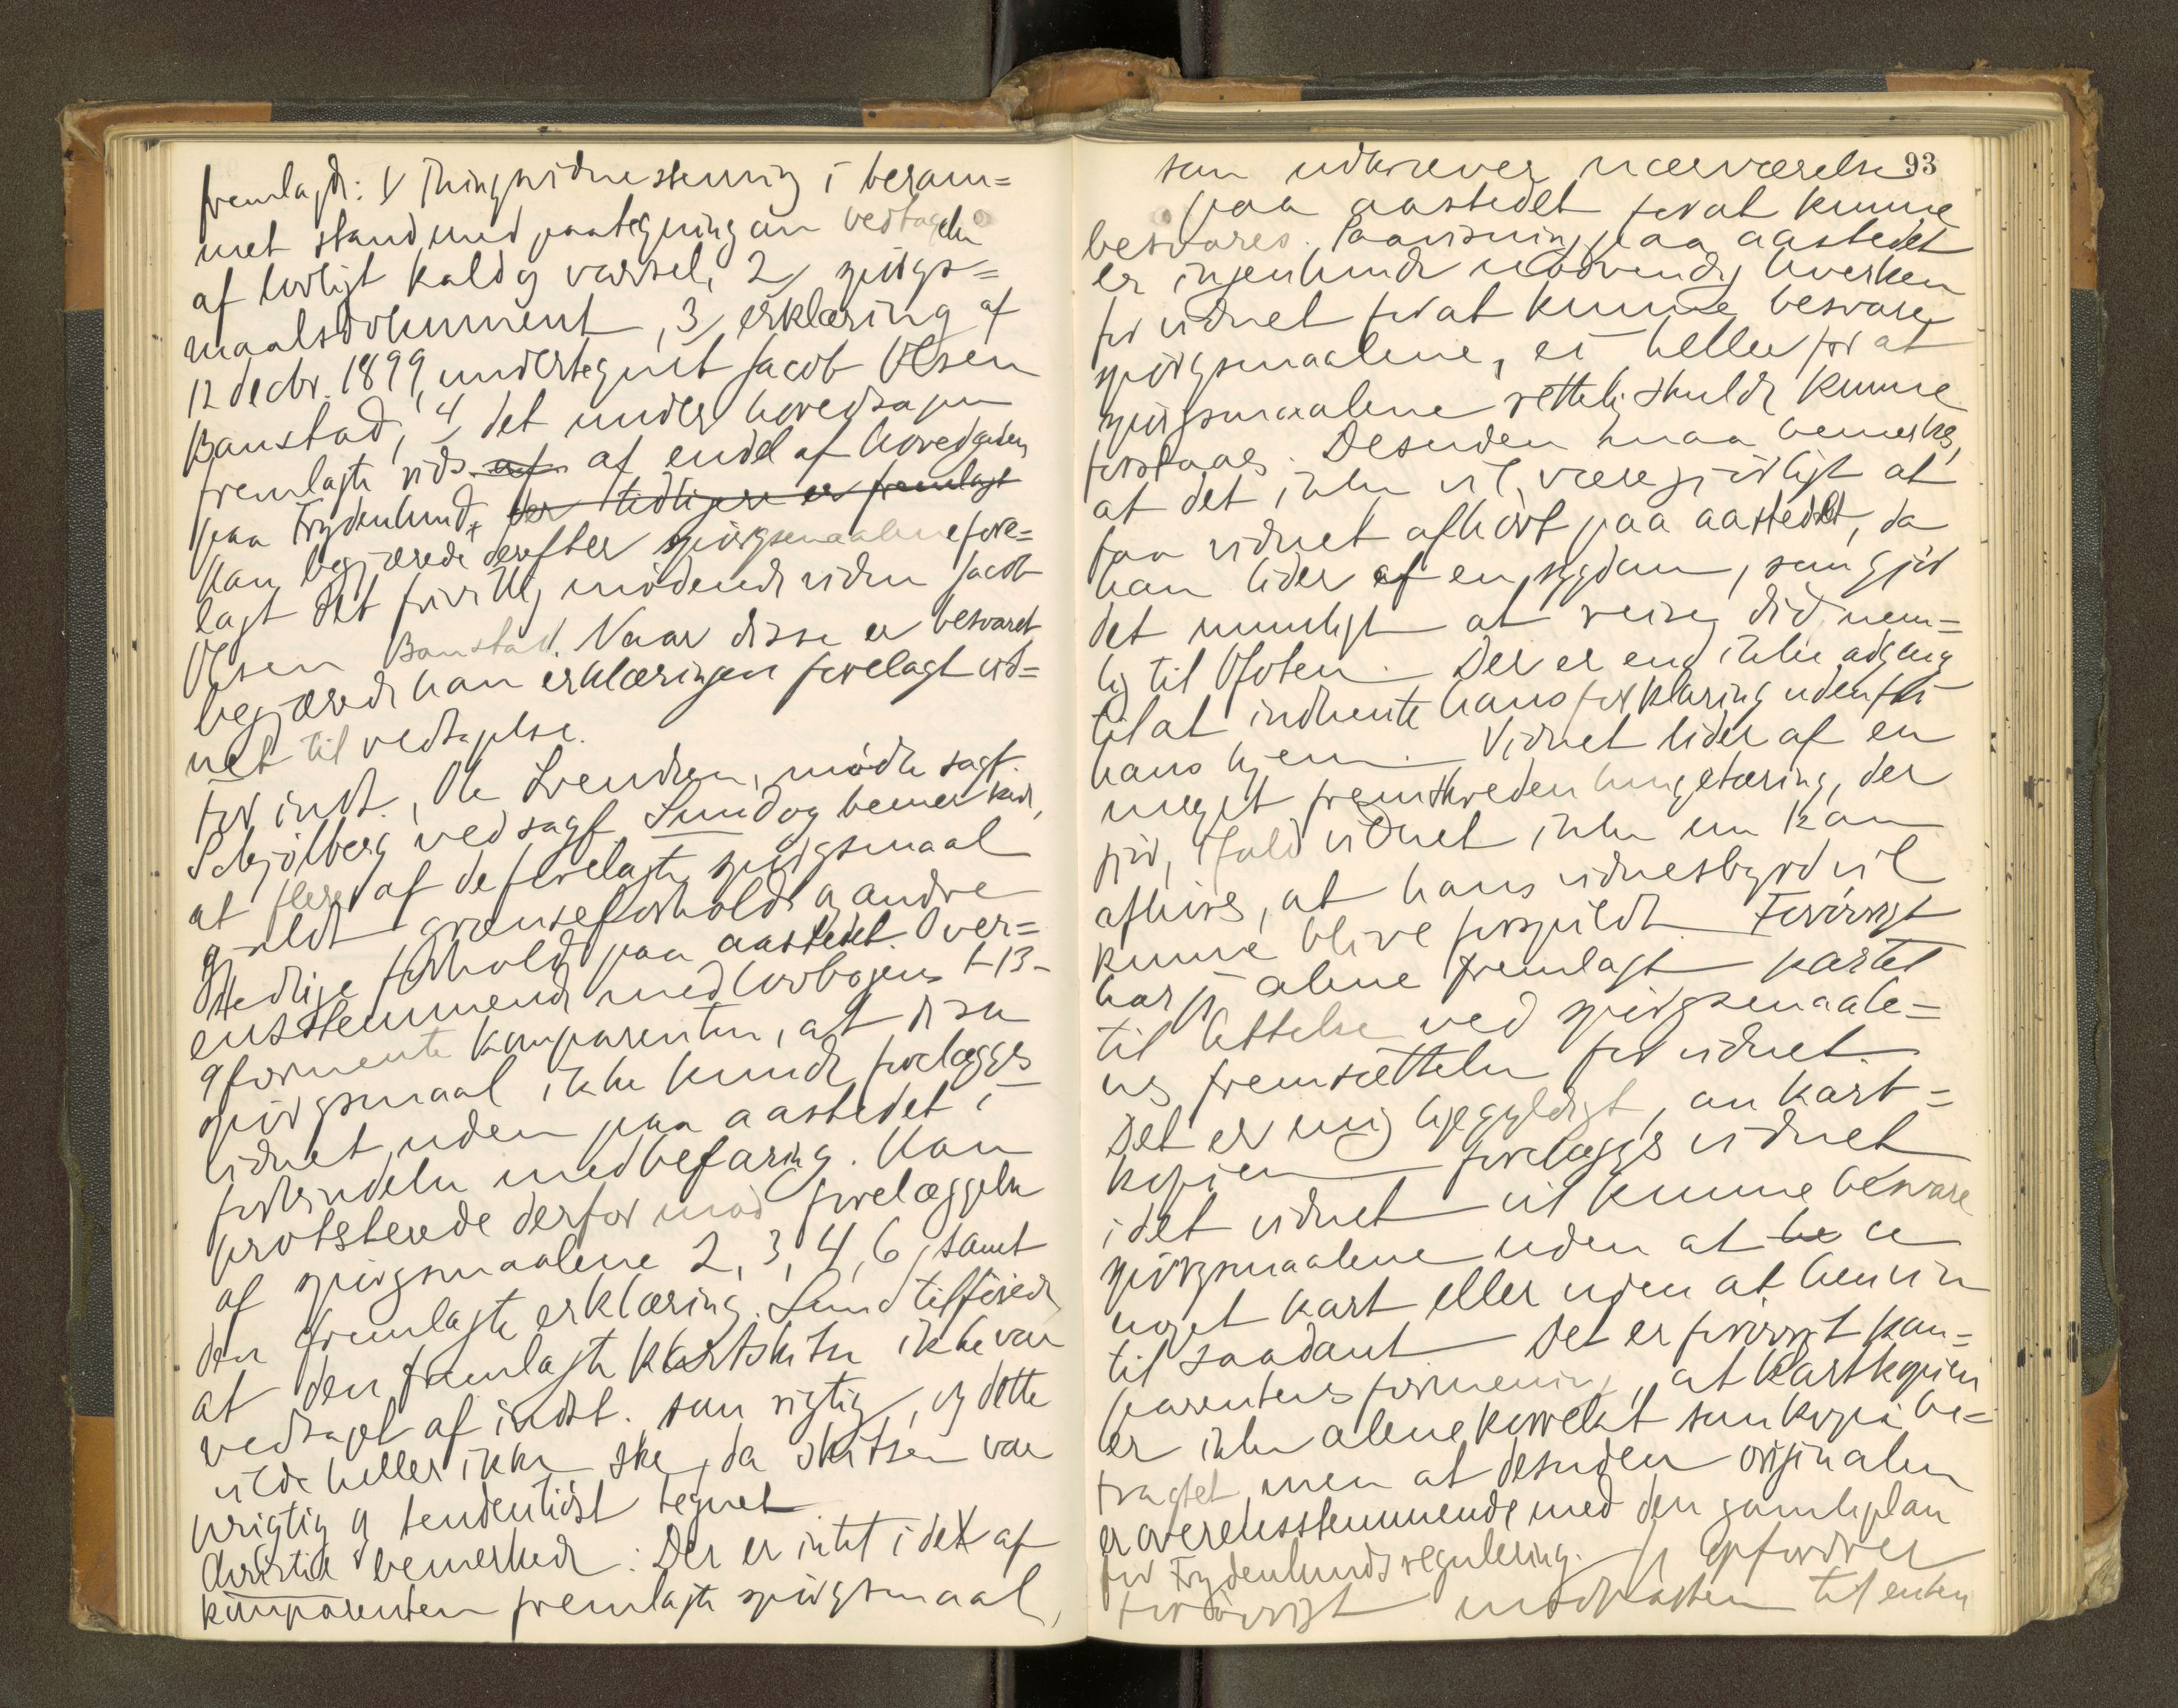 fremlagde: 1/ Thingsvidnestevning i beram=
met stand med paategning om vedtagelse
af lovligt kald og varsel, 2/ spörgs=
maalsdokument, 3/ erklæring af
12 decbr. 1899, undertegnet Jacob Olsen
Baustad, 4/ det under hovedsagen
fremlagte rids af af endel af hovedgaden
paa Frydenlund, der tidligere er fremlagt
Han begjærede derefter spörgsmaalene fore=
lagt det frivillig mödende vidne Jacob
Olsen Baustad. Naar disse er besvaret
begjærede han erklæringen forelagt vid=
net til vedtagelse.
For indst., Ole Svendsen, mödte sagf.
Schjölberg ved sagf. Lund og bemerkede,
at flere af de forelagte spörgsmaal
gjaldt grænseforhold og andre
stedlige forhold paa aastedet. Over=
ensstemmende med lovbogens 1-13-
9 formente komparenten, at disse
spörgsmaal ikke kunde forelægges
vidnet uden paa aastedet i
forbindelse med befaring. Han
protesterede derfor mod forelæggelse
af spörgsmaalene 2, 3, 4, 6, samt
den fremlagte erklæring. Lund tilföiede
at den fremlagte kartskitse ikke var
vedtaget af indst. som rigtig, og dette
vilde heller ikke ske, da skitsen var
urigtig og tendentiöst tegnet
Christie bemerkede: Der er intet i det af
komparenten fremlagte spörgsmaal,
93
som udkræver nærværelse
paa aastedet for at kunne
besvares. Paavisning paa aastedet
er ingenlunde nödvendig hverken
for vidnet for at kunne besvare
spörgsmaalene, ei heller for at
spörgsmaalene rettelig skulde kunne
forstaaes. Desuden maa bemerkes,
at det ikke vil være gjörligt at
faa vidnet afhört paa aastedet, da
han lider af en sygdom, som gjör
det umuligt at reise did, nem=
lig til Ofoten. Der er end ikke adgang
til at indhente hans forklaring udenfor
hans hjem. Vidnet lider af en
meget fremskreden lungetæring, der
gjör, ifald vidnet ikke nu kan
afhöres, at hans vidnesbyrd vil
kunne blive forspildt. Forövrigt
har jeg alene fremlagt kartet
til lettelse ved spörgsmaale=
nes fremsættelse for vidnet.
Det er mig ligegyldigt, om kart=
kopien forelægges vidnet
idet vidnet vil kunne besvare
spörgsmaalene uden at he se
noget kart eller uden at henvise
til saadant. Det er forövrigt kom=
parentens formening, at kartkopien
er ikke alene korrekt som kopi be=
tragtet, men at desuden originalen
er overensstemmende med den gamle plan
for Frydenlunds regulering. Jeg opfordrer
forövrigt modparten til enten